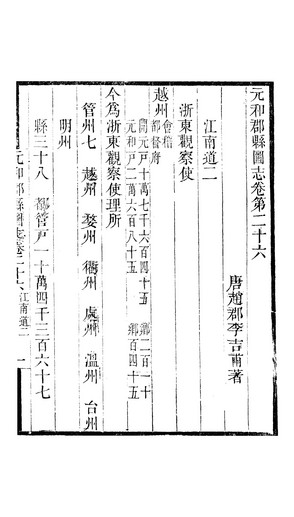 元和郡縣圖志卷第二十六
唐趙郡李吉甫著
江南道二
浙東觀察使
越州
會稽
都督府
開元戶十萬七千六百四十五 鄉二百一十
元和戶二萬六百八十五 鄉百四十五
今爲浙東觀察使理所
管州七 越州 婺州 衢州 處州 溫州 台州
明州
縣三十八 都管戶一十萬四千三百六十七
元和郡縣圖志卷二十六 江南道二 一